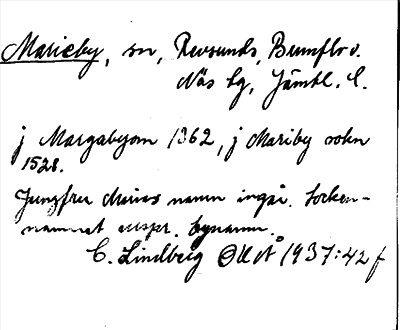 Marieby, sn, Revsunds, Brunflo o.
Näs tg, Jämtl. l.
j Margabyom 1362, j Mariby sokn
1528.
Jungfru Marias namn ingår. Socken-
namnet urspr. bynamn.
C. Lindberg OUÅ 1937:42 f